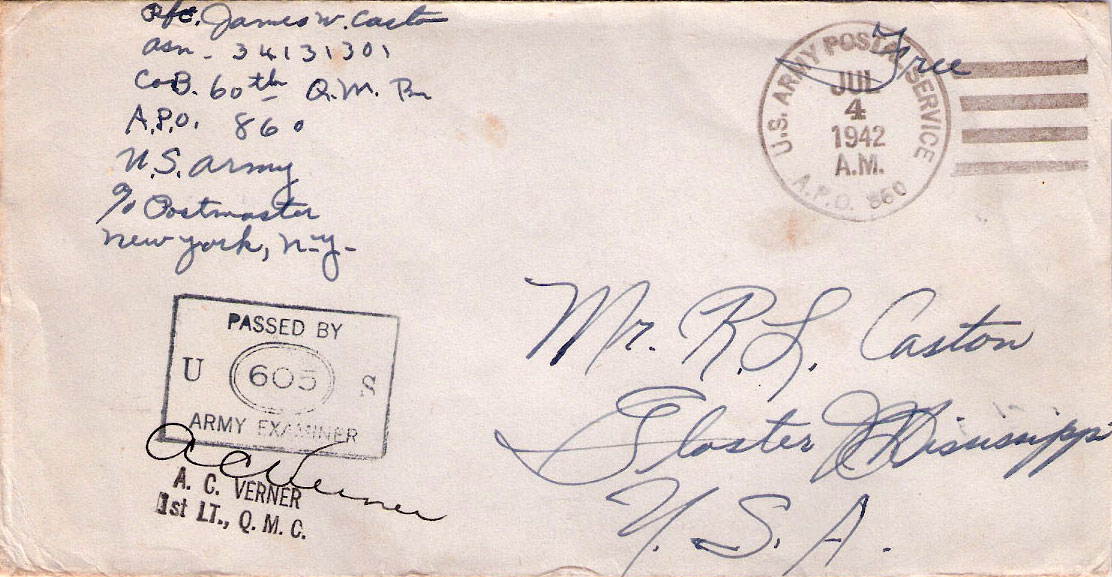 Pfc. James W. Caston
asn - 34131301
Co B. 60th Q.M. Bn
A.P.O. 860
U.S. army
c/o Postmaster
New York, N-Y-
Free
U.S. ARMY POSTAL SERVICE
JUL
4
1942
A.M.
A.P.O. 860
PASSED BY
U 605 S
ARMY EXAMINER
A C Verner
A. C. VERNER
1st LT., Q. M. C.
Mr. R. L. Caston
Gloster Mississippi
U. S. A.